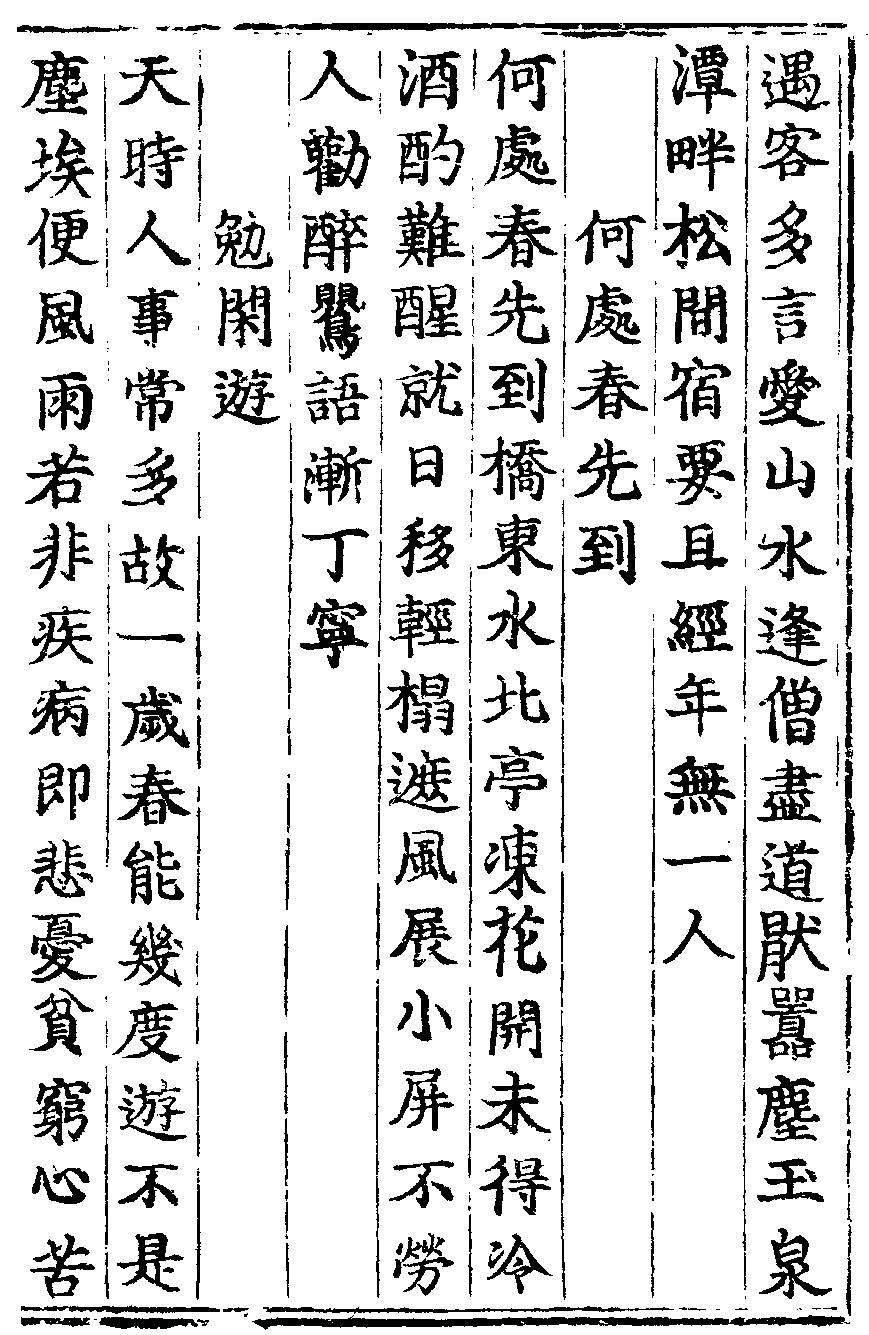 遇客多言愛山水逢僧盡道猒囂塵玉泉
潭畔松間宿要且經年無一人
何處春先到
何處春先到橋東水北亭凍花開未得冷
酒酌難醒就日移輕榻遮風展小屏不勞
人勸醉鸎語漸丁寧
勉閑遊
天時人事常多故一歲春能幾度遊不是
塵埃便風雨若非疾病即悲憂貧窮心苦